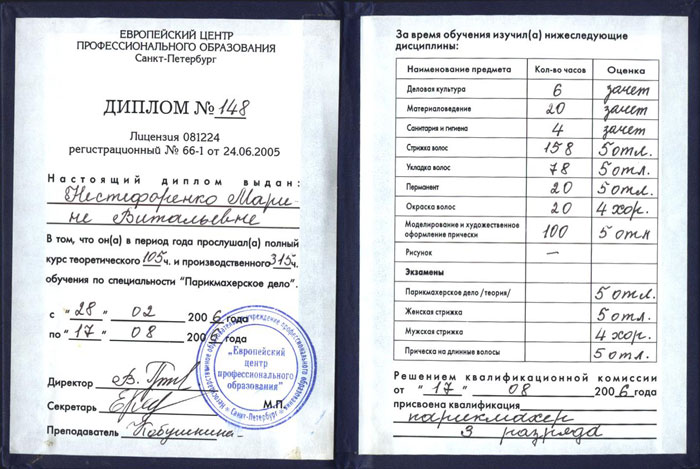 ЕВРОПЕЙСКИЙ ЦЕНТР
ПРОФЕССИОНАЛЬНОГО ОБРАЗОВАНИЯ
Санкт-Петербург
ДИПЛОМ № 148
Лицензия 081224
регистрационный № 66-1 от 24.06.2005
Настоящий диплом выдан:
Нестифоренко Мари-
не Витальевне
В том, что он(а) в период года прослушал(а) полный
курс теоретического 105 ч. и производственного 315 ч.
обучения по специальности "Парикмахерское дело".
с "28" 02 2006 года
по "17" 08 2006 года
Директор
Секретарь М.П.
Преподаватель Кобушкина
"Европейский
центр
профессионального
образования"
Санкт-Петербург
За время обучения изучил(а) нижеследующие
дисциплины:
Наименование предмета Кол-во часов Оценка
Деловая культура 6 зачет
Материаловедение 20 зачет
Санитария и гигиена 4 зачет
Стрижка волос 158 5 отл.
Укладка волос 78 5 отл.
Перманент 20 5 отл.
Окраска волос 20 4 хор.
Моделирование и художественное
оформление прически 100 5 отл
Рисунок —
Экзамены
Парикмахерское дело /теория/ 5 отл.
Женская стрижка 5 отл.
Мужская стрижка 4 хор.
Прическа на длинные волосы 5 отл.
Решением квалификационной комиссии
от "17" 08 2006 года
присвоена квалификация
парикмахер
3 разряда